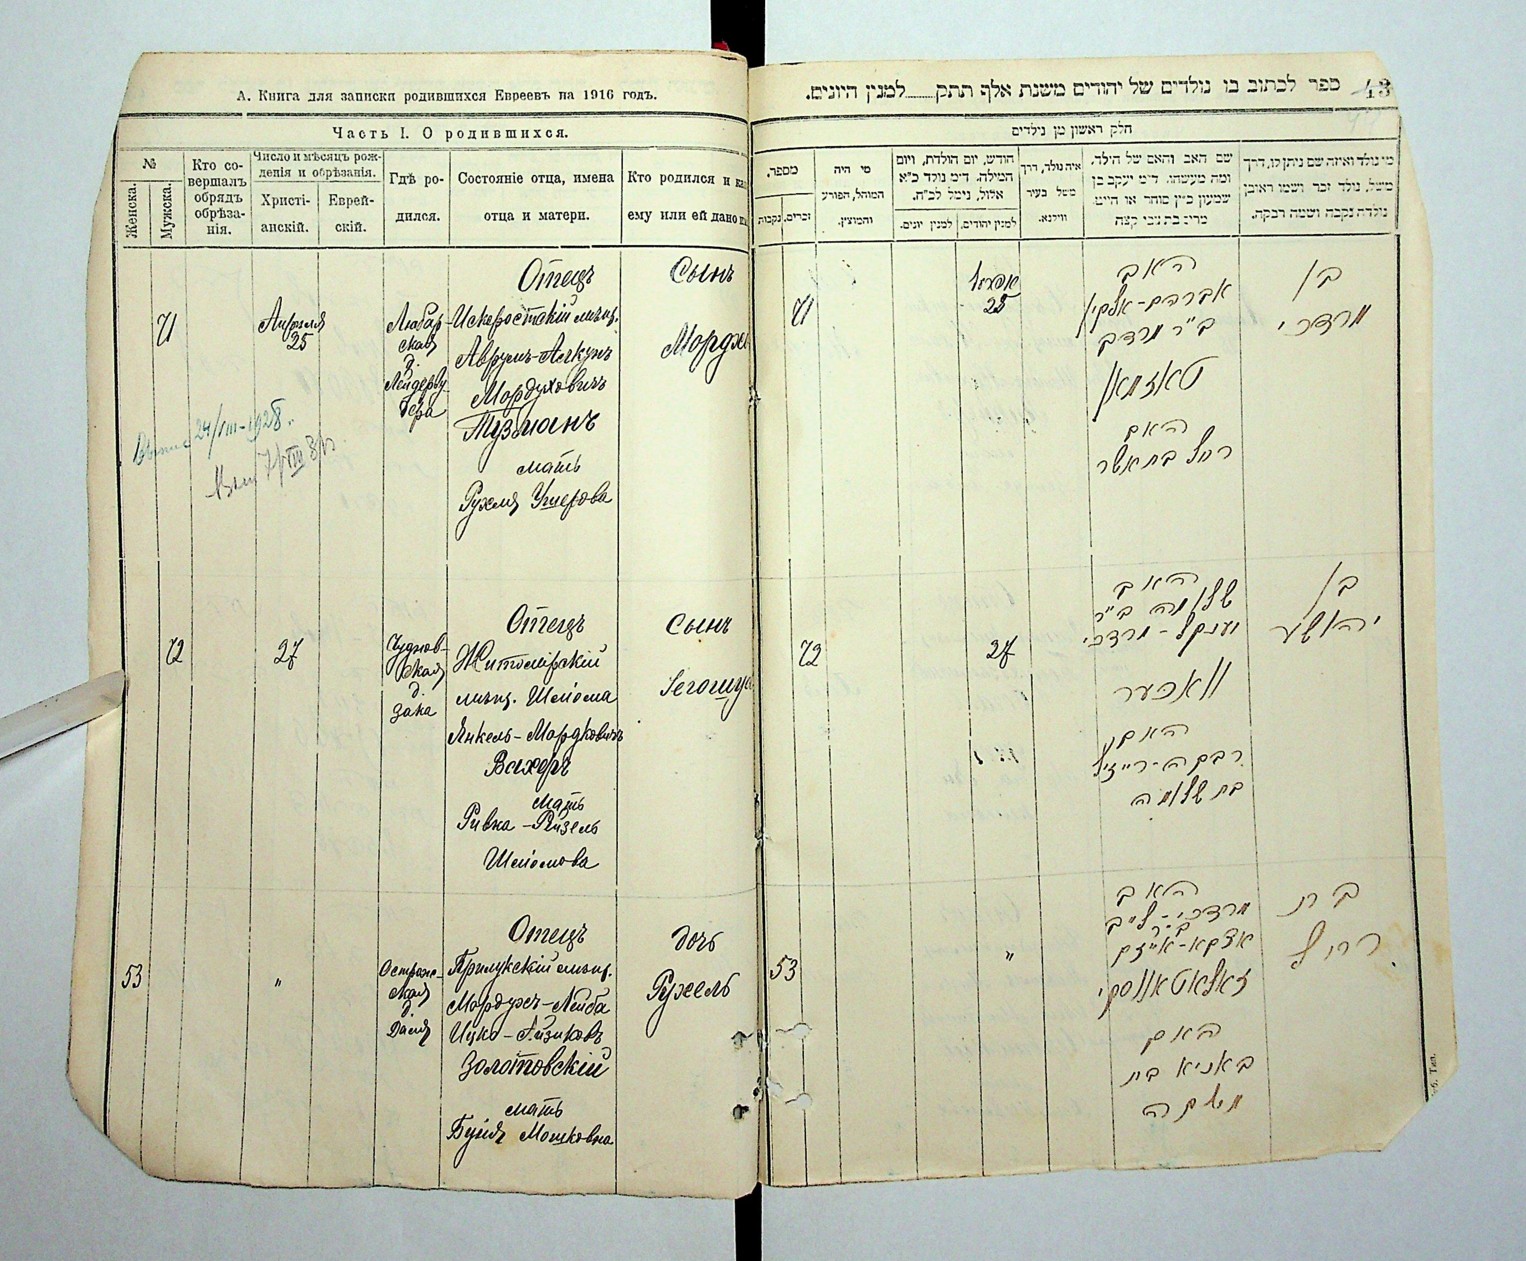 А. Книга для записки родившихся Евреевъ на 1916 годъ.
Часть I. О родившихся.
№
Женска.
Мужска.
Кто со-
вершалъ
обрядъ
обрѣза-
нія.
Число и мѣсяцъ рож-
денія и обрѣзанія.
Христі-
анскій.
Еврей-
скій.
Гдѣ ро-
дился.
Состояніе отца, имена
отца и матери.
Кто родился и
ему или ей дано
71
Апрѣля
25
Любар-
ская
д.
Отецъ
Искоростскій мѣщ.
Аврумъ-
Мордуховичъ
Тузманъ
мать
Рухля Ушерова
Сынъ
24/VIII-1928.
72
27
Чуднов-
ская
д.
Зака
Отецъ
Житомірскій
мѣщ. Шліома
Янкель-Мордковичъ
Вахеръ
мать
Ривка-Рейзель
Шліомова
Сынъ
53
"
Острож-
ская
д.
Отецъ
Прилукскій мѣщ.
Мордухъ-Лейба
Ицко-Айзиковъ
Золотовскій
мать
Бунія Мошковна
дочь
Рухель
43
ספר לכתוב בו נולדים של יהודים משנת אלף תתק........למנין היונים.
חלק ראשון מן נולדים
מספר.
זכרים.
נקבות
מי היה
המוהל, הפורע
והמוצץ.
חודש, יום הולדת, ויום
המילה. ד״מ נולד כ״א
אלול, נימל לכ״ח.
למנין יהודים.
למנין יונים.
איה נולד, דרך
משל בעיר
ווילנא.
שם האב והאם של הילד.
ומה מעשהו. ד״מ יעקב בן
שמעון כ״ץ סוחר או חייט.
מי נולד ואיזה שם ניתן לו, דרך
משל, נולד זכר ושמו ראובן
נולדה נקבה ושמה רבקה.
71
אפריל
25
האב
ב״ר מרדכי
האם
רחל בת אשר
בן
מרדכי
72
27
האב
שלומה ב״ר
יענקל-מרדכי
וואכער
האם
רבקה-רייזיל
בת שלומה
בן
יהושע
53
"
האב
מרדכי-לייב
ב״ר
זאלאטאווסקי
האם
באניא בת
משה
בת
רחל